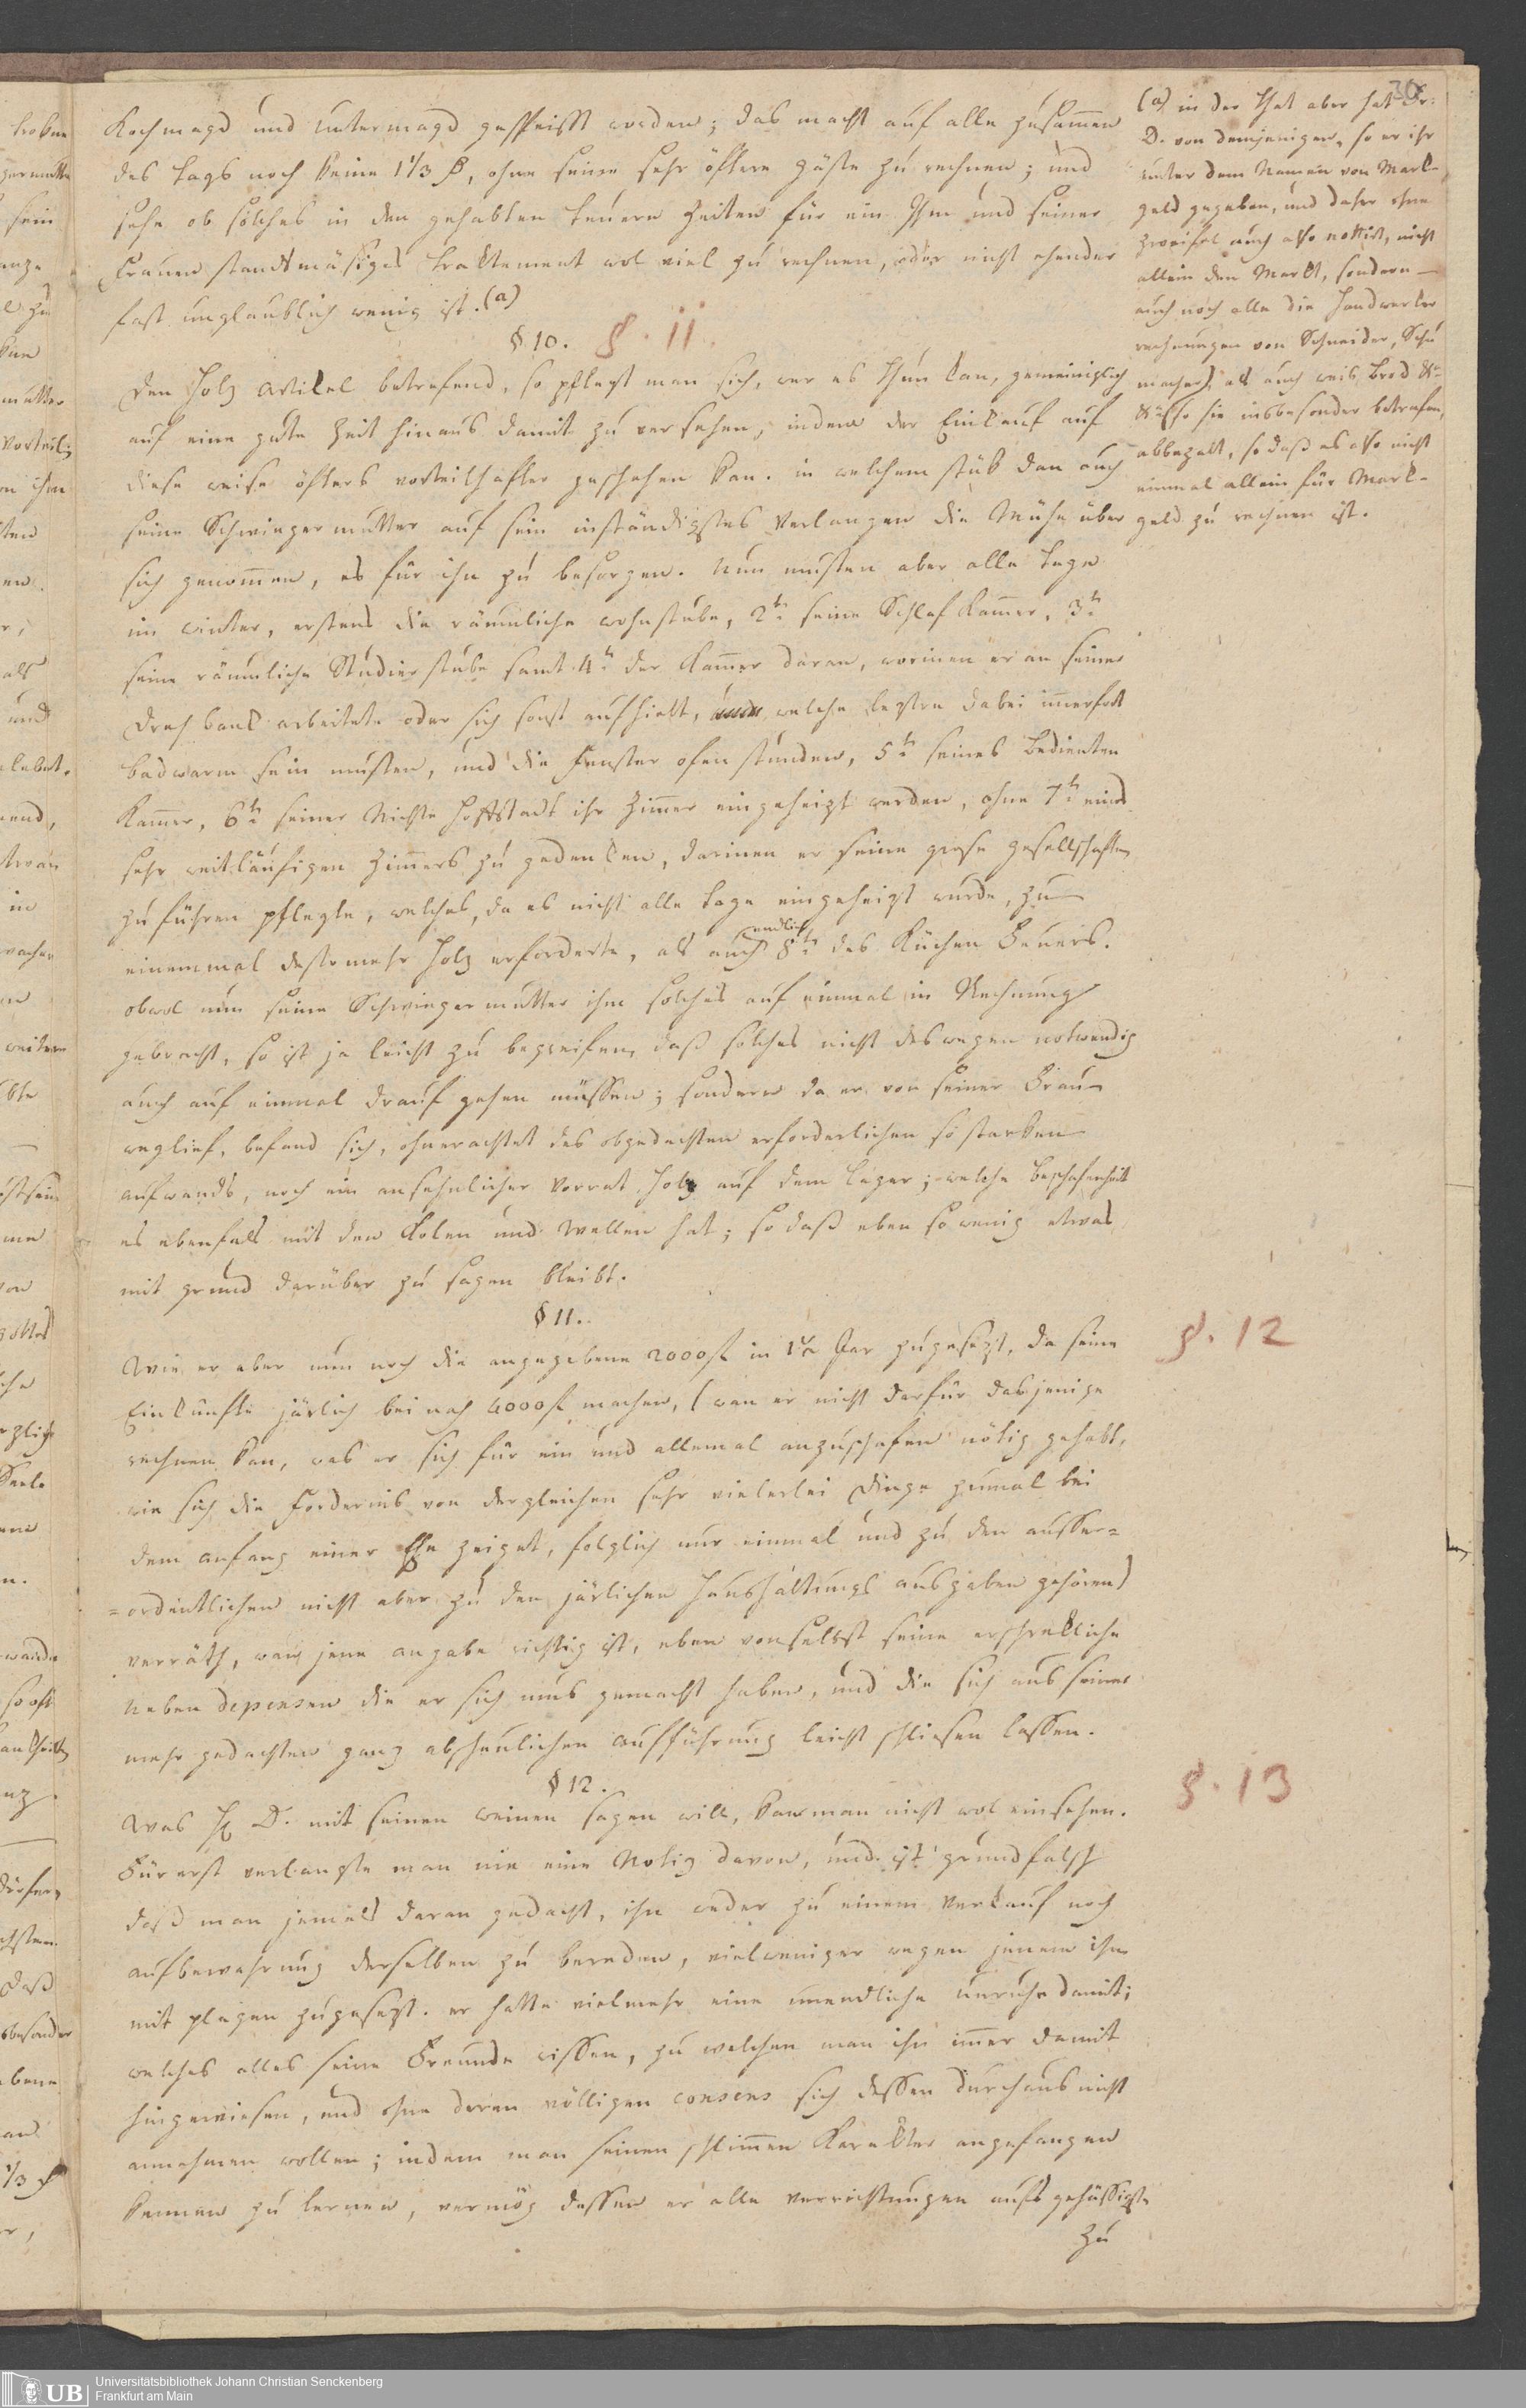 30
Kochmagd und Untermagd gespeisst worden; das macht auf alle zusamen
des tags noch keine 1 1/3 f, ohne seine sehr öftere gäste zu rechnen; und
sehe ob solches in den gehabten teuern Zeiten für ein Ihm und seiner
Frauen standtmäsiges traktement wol viel zu rechnen, oder nicht ehender
fast unglaublich wenig ist. (a)
§ 10. §. 11.
Den Holz Artikel betrefend, so pflegt man sich, wer es thun kan, gemeiniglich
auf eine gute Zeit hinaus damit zu versehen, indem der Einkauf auf
diese weise öfters vorteilhafter geschehen kan. in welchem stük dan auch
seine Schwiegermutter auf sein inständigstes Verlangen die Mühe über
sich genomen, es für ihn zu besorgen. Nun musten aber alle tage
im winter, erstens die räumliche wohnstube, 2te seine Schlafkamer, 3te
seine räumliche Studierstube samt 4te der Kamer daran, worinen er an seiner
Drehbank arbeitete oder sich sonst aufhielt, welche leztre dabei imerfort
badwarm sein musten, und die Fenster ofen stunden, 5te seines bedienten
Kamer, 6te seiner Nichte Hoffstadt ihr Zimer eingeheizt werden, ohne 7te eines
sehr weitläufigen Zimers zu gedenken, darinen er seine grose gesellschaften
zu führen pflegte, welches, da es nicht alle tage eingeheizt wurde, zu
einemmal destomehr Holz erforderte, als auch endlich 8te des Küchen Feuers.
obwol nun seine Schwiegermutter ihm solches auf einmal in Rechnung
gebracht, so ist ja leicht zu begreifen, daß solches nicht deswegen notwendig
auch auf einmal drauf gehen müssen; sondern da er von seiner Frau
weglief, befand sich, ohnerachtet des obgedachten erforderlichen so starken
aufwands, noch ein ansehnlicher Vorrat Holz auf dem lager; welche beschafenheit
es ebenfals mit den Kolen und Wellen hat; so daß eben so wenig etwas
mit grund darüber zu sagen bleibt.
§ 11.
§. 12
Wie er aber nun noch die angegebene 2000 f in Jar zugesezt, da seine
Einkünfte järlich bei nah 4000 f machen, (wan er nicht darfür dasjenige
rechnen kan, was er sich für ein und allemal anzuschafen nötig gehabt,
wie sich die Fordernis von dergleichen sehr vielerlei Dinge zumal bei
dem anfang einer Ehe zeiget, folglich nur einmal und zu den ausser=
=ordentlichen nicht aber zu den järlichen Haushaltungs ausgaben gehören)
verräth, wan jene angabe richtig ist, eben von selbst seine erschrekliche
Neben depensen die er sich mus gemacht haben, und die sich aus seiner
mehr gedachten ganz abscheulichen aufführung leicht schliesen lassen.
§ 12.
§. 13
Was H D. mit seinen weinen sagen will, kan man nicht wol einsehen.
Fürerst verlangte man nie eine Notiz davon, und ist grundfalsch
daß man jemals daran gedacht, ihn weder zu einem Verkauf noch
aufbewahrung derselben zu bereden, vielweniger wegen jenem ihm
mit plagen zugesezt. er hatte vielmehr eine unendliche unruhe damit;
welches alles seine Freunde wissen, zu welchen man ihn imer damit
hingewiesen, und ohne deren völligen consens sich dessen durchaus nicht
annehmen wollen; indem man seinen schlimen Karakter angefangen
kennen zu lernen, vermög dessen er alle verrichtungen aufs gehässigste
zu
(a) in der That aber hat Hr.
D. von demjenigen, so er ihr
unter dem Namen von Mark-
geld gegeben, und daher ohne
zweifel auch also notirt, nicht
allein den Markt, sondern
auch noch alle die Handwerker
rechnungen von Schneider, Schu
macher, als auch weis Brod
so sie insbesonder betrafen,
abbezalt, so daß es also nicht
einmal allein für Mark-
geld zu rechnen ist.
Universitätsbibliothek Johann Christian Senckenberg
Frankfurt am Main